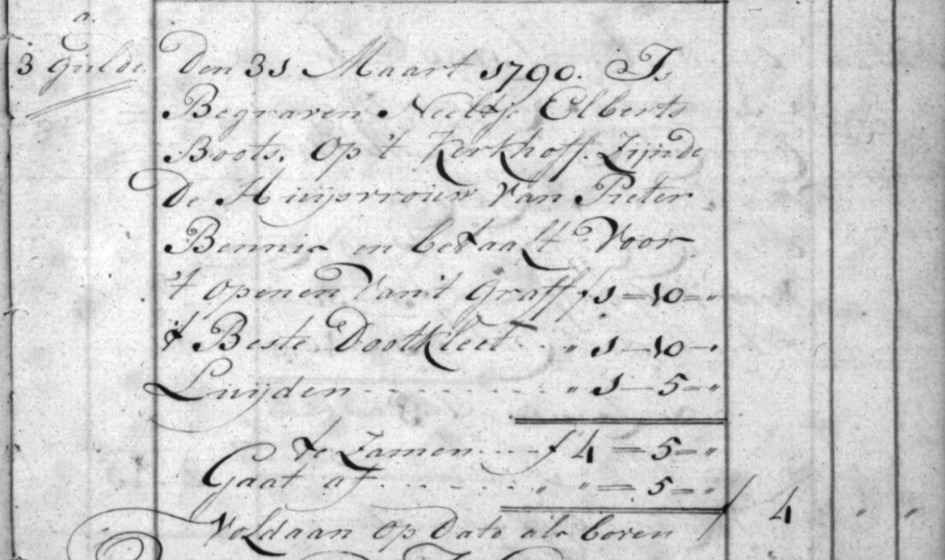 a.
3 Gulde
Den 31 Maart 1790. Is
Begraven Neeltje Elberts
Boots. Op 't Kerkhoff. Zijnde
De Huijsvrouw Van Pieter
Bennis en betaalt Voor
't openen Van't Graff f 1 = 10 = "
't Beste Dootkleet . . " 1 - 10 - "
Luijden . . . . . . . . . " 1 - 5 = "
te Zamen . . . f 4 = 5 = "
Gaat af . . . . . . . " " = 5 = "
Voldaan op Dato als boven 4 " "